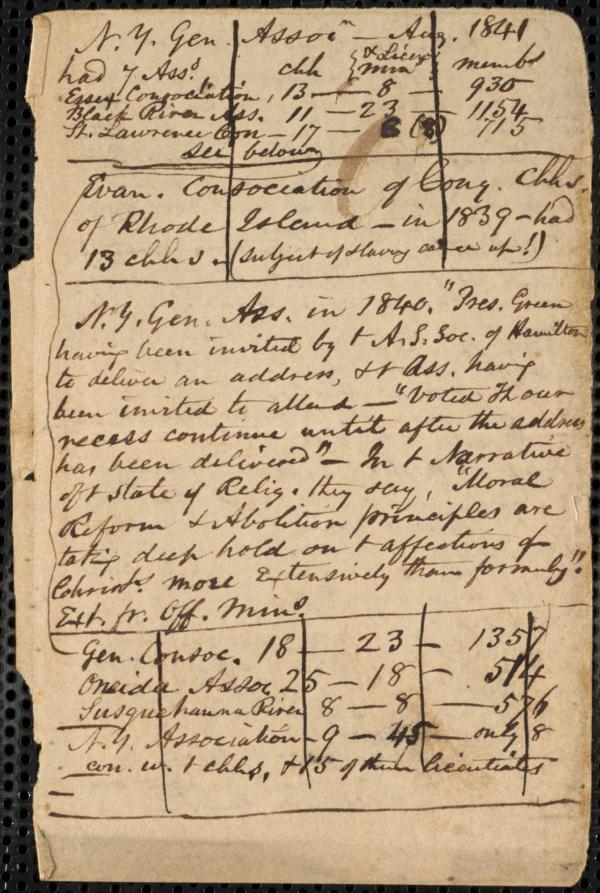 N. Y. Gen. Assoi" — Aug. 1841
had 7 Ass.s chh { & Licen. min. membs
Essex Consociation, 13 — 8 — 930
Black River Ass. 11 — 23 — 1154
St. Lawrence Con — 17 — 6 (8) 715
see below
Evan. Consociation of Cong. Chhs.
of Rhode Island — in 1839 — had
13 chhs. (subject of slavery came up!)
N. Y. Gen. Ass. in 1840. "Pres. Green
having been invited by t A. S. Soc. of Hamilton
to deliver an address, & t Ass. having
been invited to attend — "Voted Tt our
recess continue until after the address
has been delivered" — In t Narrative
of t State of Relig. they say, "Moral
Reform & Abolition principles are
taking deep hold on t affections of
Christns more Extensively than formerly".
Ext. fr. Off. Mins.
Gen. Consoc. 18 — 23 — 1357
Oneida Assoc 25 — 18 — 514
Susquehanna River 8 — 8 — 576
N. Y. Association — 9 — 45 — only 8
con. w. t chhs, & 15 of them licentiates